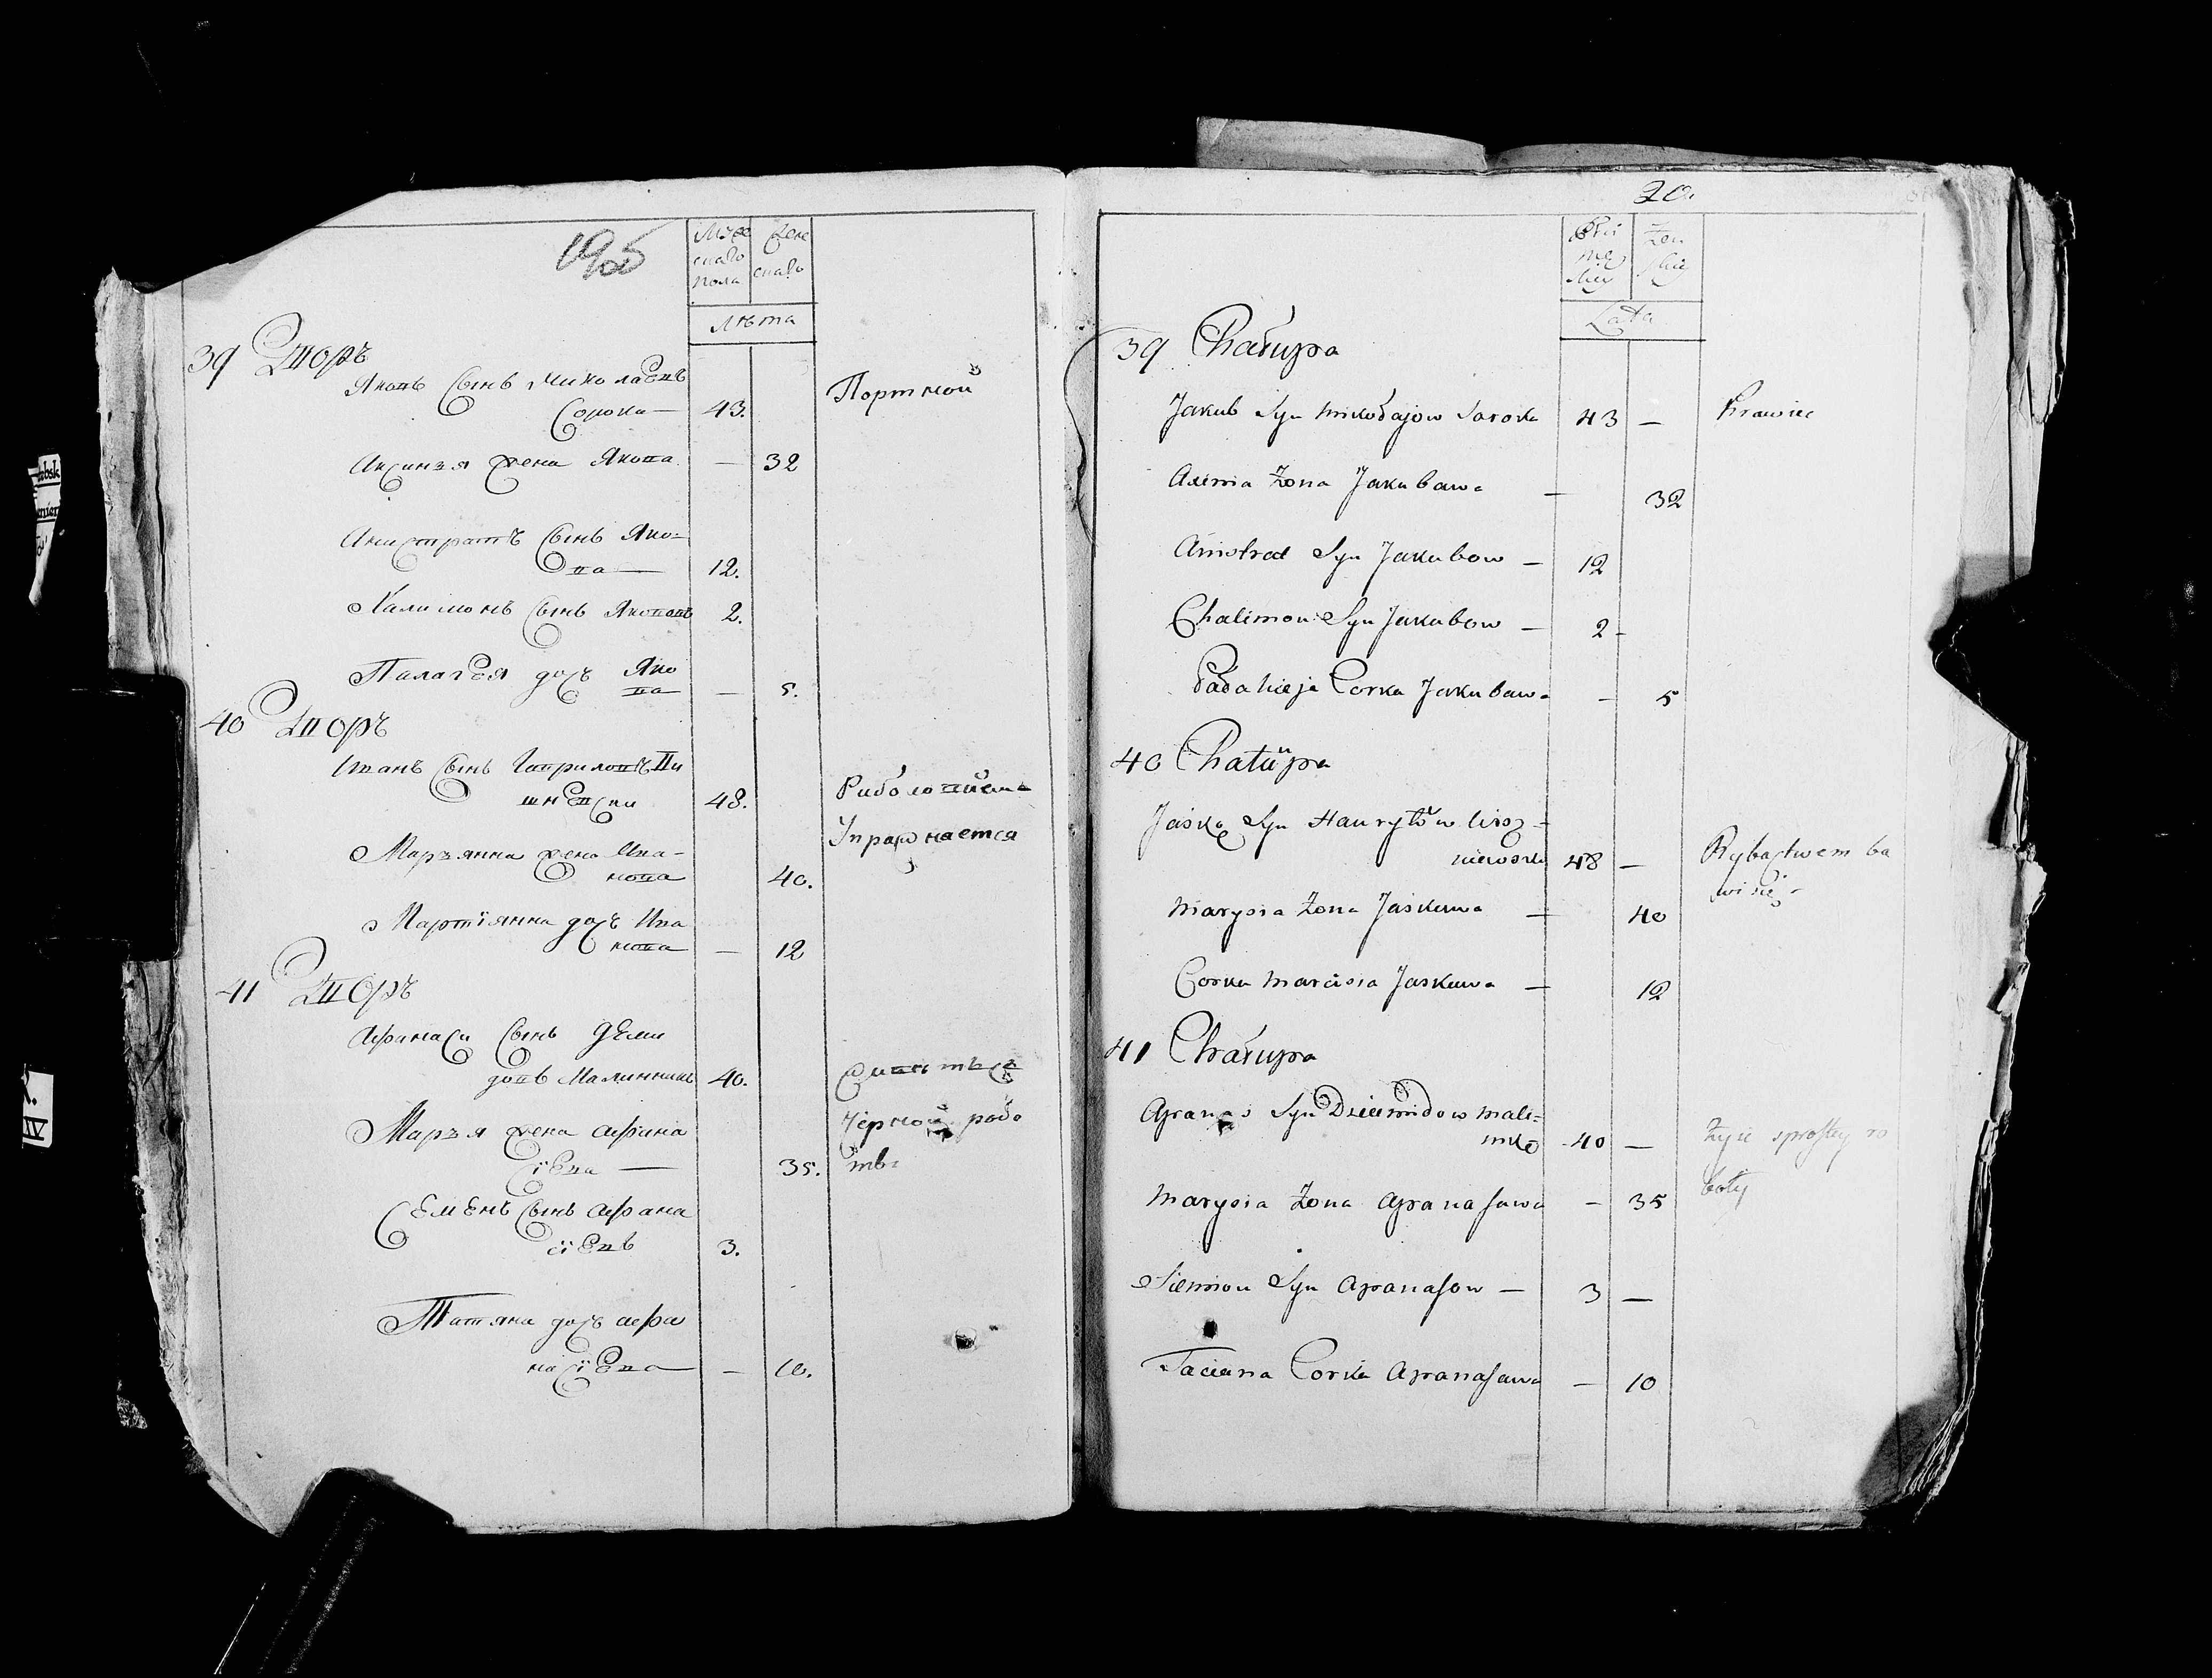 Муже
скаго
пола
Жене
скаго
Лѣта
39 Дворъ
Яковъ Сынъ Миколаевъ
Сорока — 43.
Портной
Аксинья жена Якова — 32
Анистратъ Сынъ Яко=
ва — 12.
Халимонъ Сынъ Якововъ 2.
Палагея дочъ Яко
ва — 5.
40 Дворъ
Иванъ Сынъ Гавриловъ Ви
шневски 48.
Риболовйемъ
Упражнается
Марьянна жена Ива=
нова 40.
Мартіянна дочъ Ива
нова — 12
41 Дворъ
Афанаси Сынъ Деми
довъ Малинникъ 40.
Чёрной рабо
Марья жена Афана
сіева — 35.
тѣ
Семенъ Сынъ Афана
сіевъ 3.
Татяна дочъ Афа
насіева — 10.
20.
Męz
kiey
Żen
skiey
Lata
39 Chałupa
Jakub Syn Mikołajow Saroka 43 — Krawiec
Axinia Żona Jakubawa — 32
Anistrat Syn Jakubow — 12
Chalimon Syn Jakubow — 2 -
Pałahieja Corka Jakubawa — 5
40 Chałupa
Jaśko Syn Hauryłow Wisz=
niewski 48 —
Rybastwem ba
wi się -
Marysia Żona Jaskowa — 40
Corka Marcisia Jaskowa — 12
41 Chałupa
Apanas Syn Dziemidow Mali=
nko 40 —
Żyie sprostey ro
boty
Marysia Żona Apanasawa — 35
Siemion Syn Apanasow — 3 —
Taciana Corka Apanasawa — 10